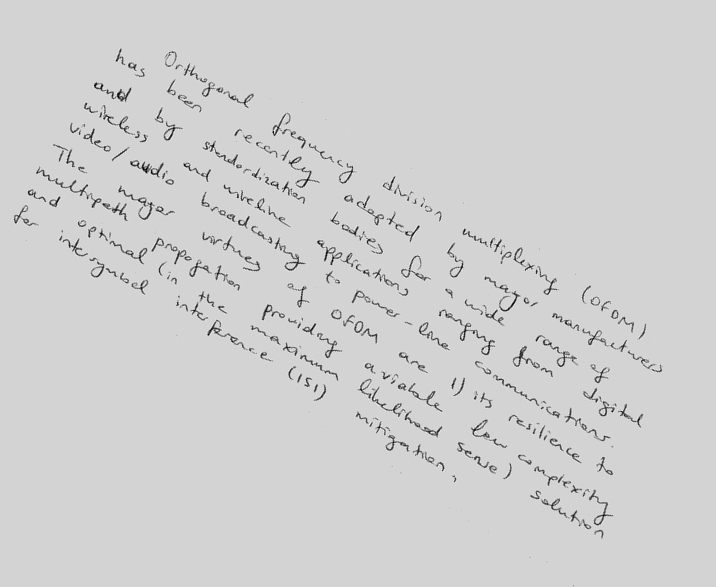 Orthogonal frequency division multiplexing (OFDM)
has been recently adopted by mayor manufacturers
and by standardization bodies for a wide range of
wireless and wireline applications ranging from digital
video/audio broadcasting to power-line communications.
The mayor virtues of OFDM are 1) its resilience to
multipath propogation providing aviable low complexity
and optimal (in the maximum likelihood sense) solution
for intersymbol interference (ISI) mitigation,